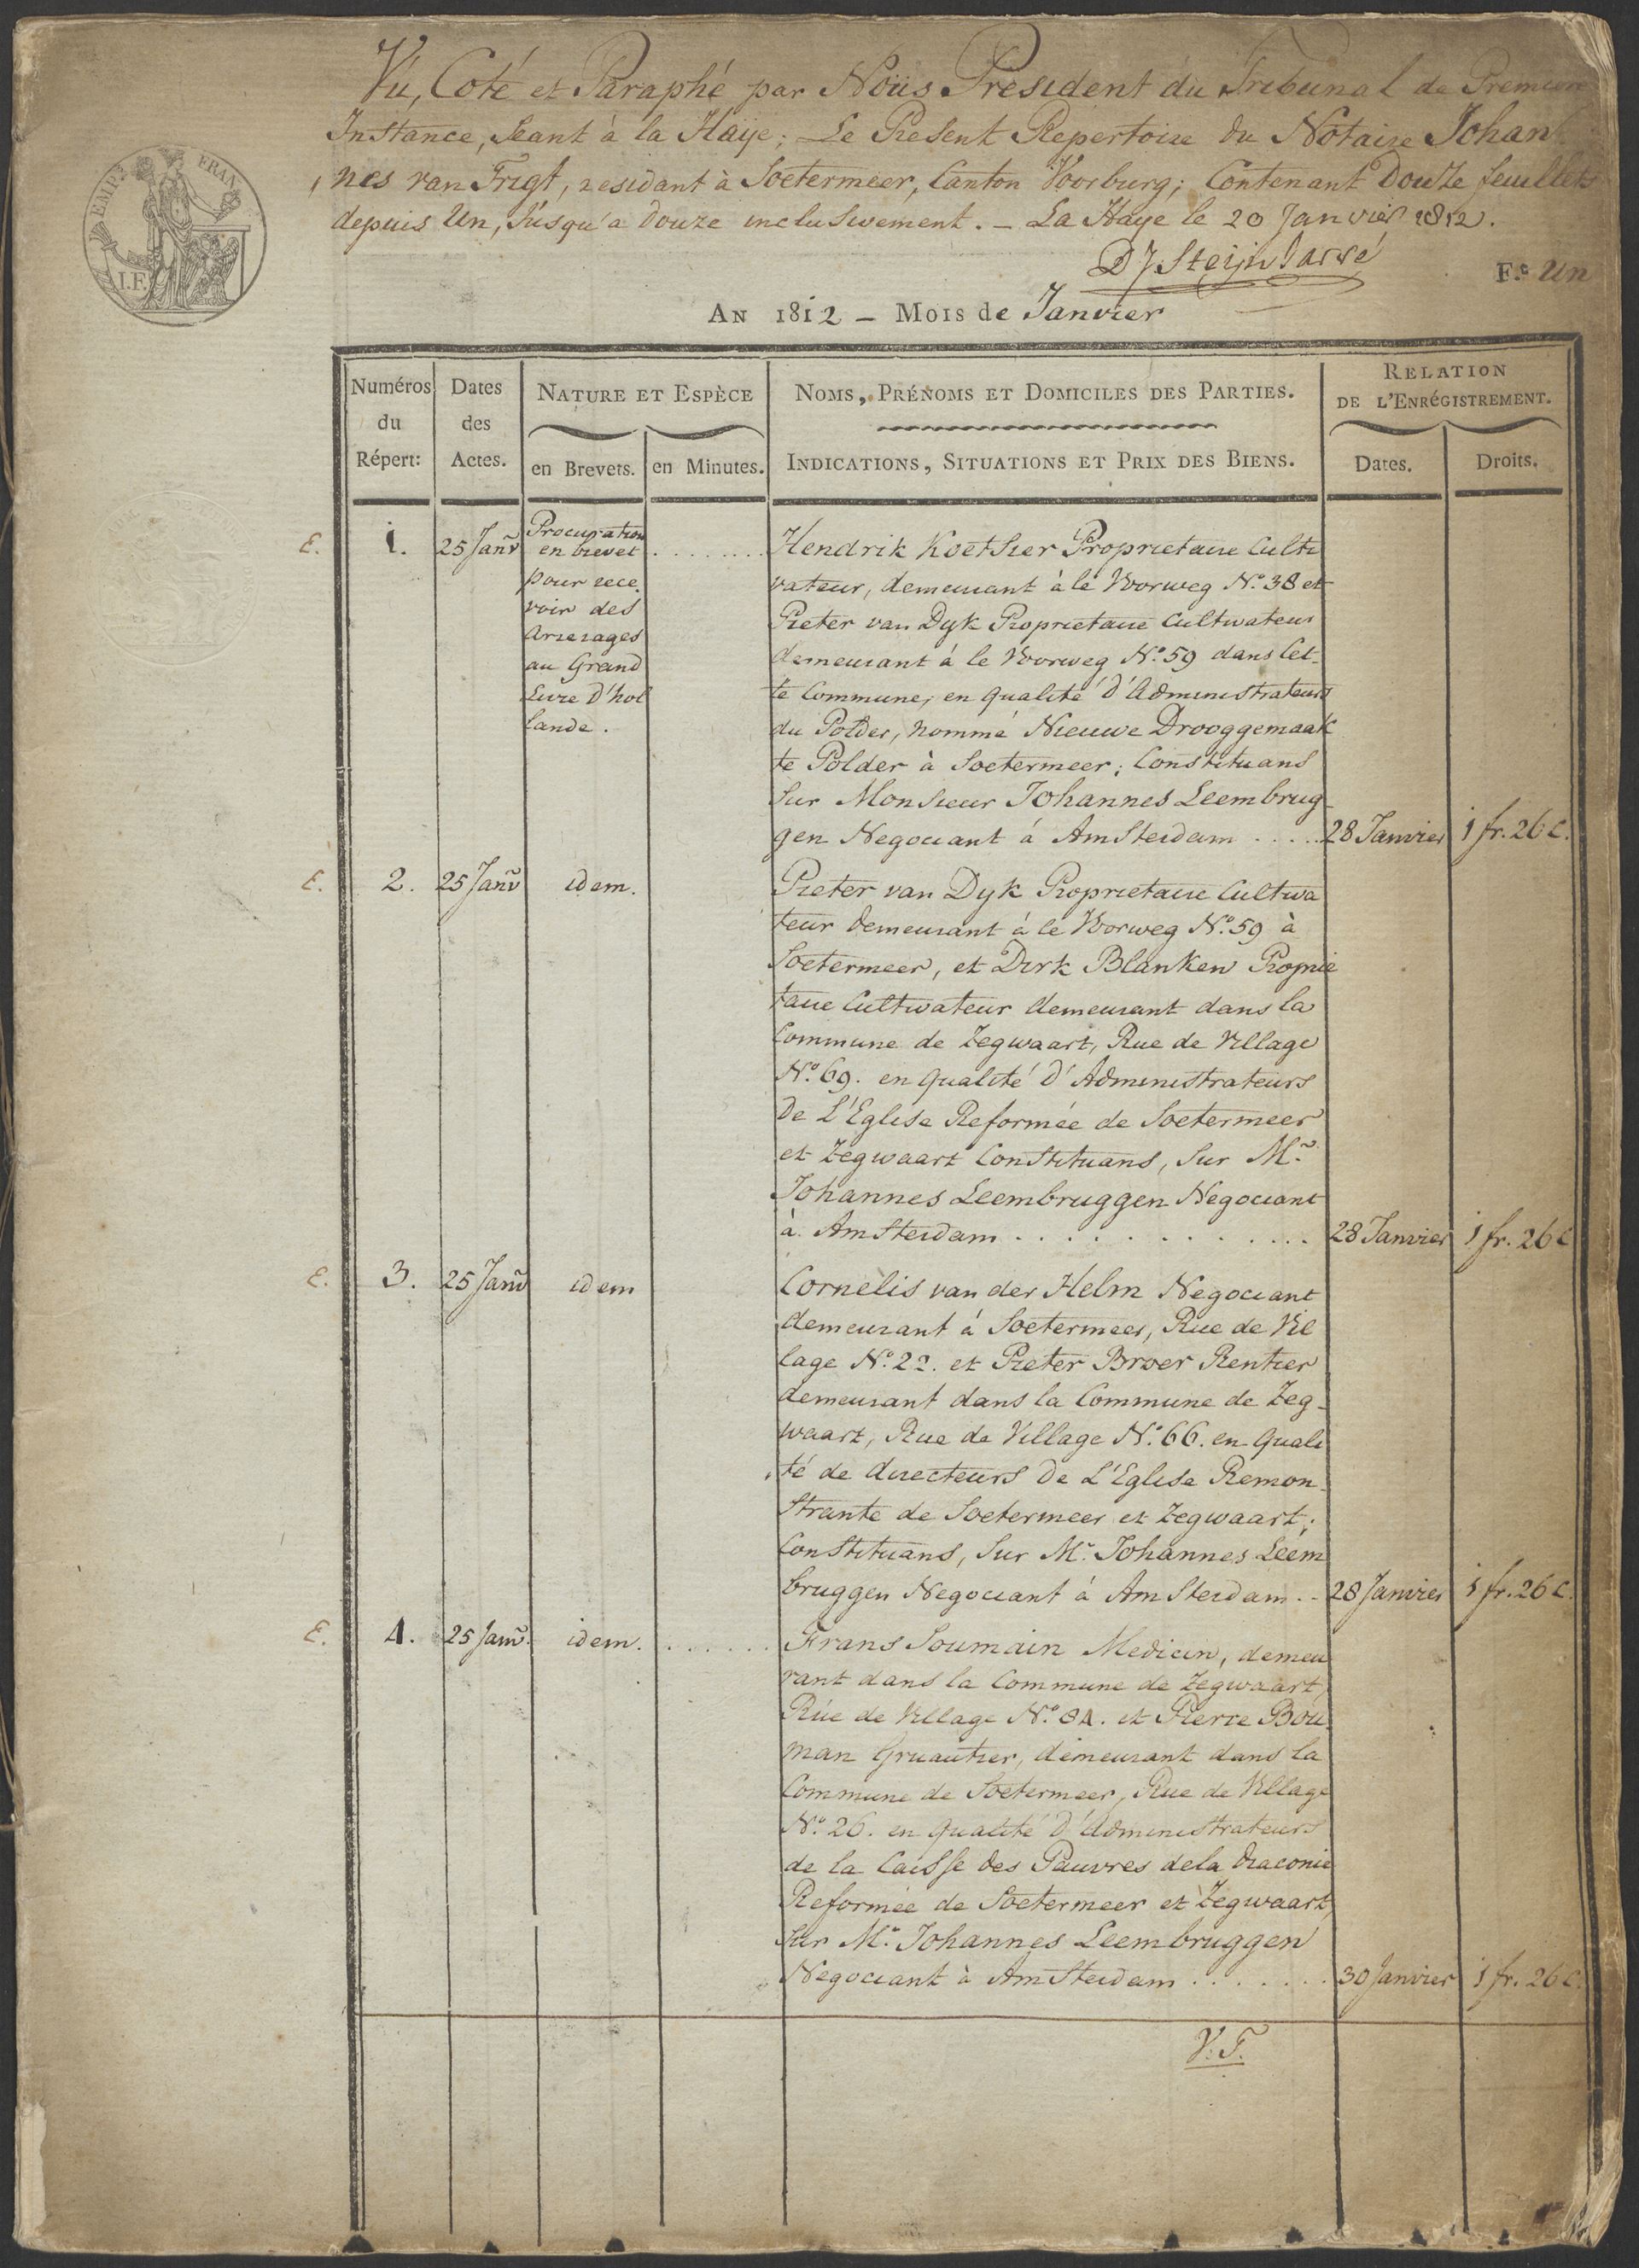 Vú, Coté et Paraphé par Noüs President dú Tribunal de Premiere
Instance, Seant à la Haÿe; Le Present Repertoire du Notaire Johan
nes van Frigt, residant à Soetermeer, Canton Voorburg; Contenant Douze feuillets
depuis Un, Jusqu'a Douze inclusivement. – La Haye le 20 Janvier 1812.
EMP. FRAN
I.F.
F.º Un
AN 1812 – MOIS de Janvier
Numéros du Répert:
Dates des Actes.
NATURE ET ESPÈCE
en Brevets. en Minutes.
NOMS, PRÉNOMS ET DOMICILES DES PARTIES.
INDICATIONS, SITUATIONS ET PRIX DES BIENS.
RELATION
DE L'ENRÉGISTREMENT.
Dates. Droits.
E. 1. 25 Janv
Procuration
en brevet
pour rece
voir des
Arrerages
au Grand
Livre d'hol
lande.
Hendrik Koetsier Proprietaire Culti
vateur, demeurant à le Voorweg Nº. 38 et
Pieter van Dyk Proprietaire Cultivateur
demeurant à le Voorweg Nº. 59 dans Cet-
te Commune, en qualité d'Administrateurs
du Polder, nommé Nieuwe Drooggemaak
te Polder à Soetermeer; Constituans
Sur Monsieur Johannes Leembrug-
gen Negociant à Amsterdam . . . . . 28 Janvier 1 fr. 26 C.
E. 2. 25 Janv idem. Pieter van Dyk Proprietaire Cultiva
teur demeurant à le Voorweg Nº. 59 à
Soetermeer, et Dirk Blanken Proprie
taire Cultivateur demeurant dans la
Commune de Zegwaart, Rue de Village
Nº. 69. en qualité d'Administrateurs
de L'Eglise Reformée de Soetermeer
et Zegwaart Constituans, Sur Mr.
Johannes Leembruggen Negociant
à Amsterdam . . . . . . . . . . . 28 Janvier 1 fr. 26 C
E. 3. 25 Janv idem Cornelis van der Helm Negociant
demeurant à Soetermeer, Rue de Vil
lage Nº. 22. et Pieter Broer Rentier
demeurant dans la Commune de Zeg-
waart, Rue de Village Nº. 66. en quali
té de directeurs de L'Eglise Remon-
strante de Soetermeer et Zegwaart;
Constituans, Sur Mr. Johannes Leem
bruggen Negociant à Amsterdam . . 28 Janvier 1 fr. 26 C.
E. 4. 25 Janv. idem. . . . . . . Frans Soumain Medicin, demeu
rant dans la Commune de Zegwaart,
Rúe de Village Nº. 84. et Pierre Bou
man Gruautier, demeurant dans la
Commune de Soetermeer, Rue de Village
Nº. 26. en qualité d'Administrateurs
de la Caisse des Pauvres dela Diaconie
Reformée de Soetermeer et Zegwaart,
Sur Mr. Johannes Leembruggen
Negociant à Amsterdam . . . . . . . 30 Janvier 1 fr. 26 C.
V. F.